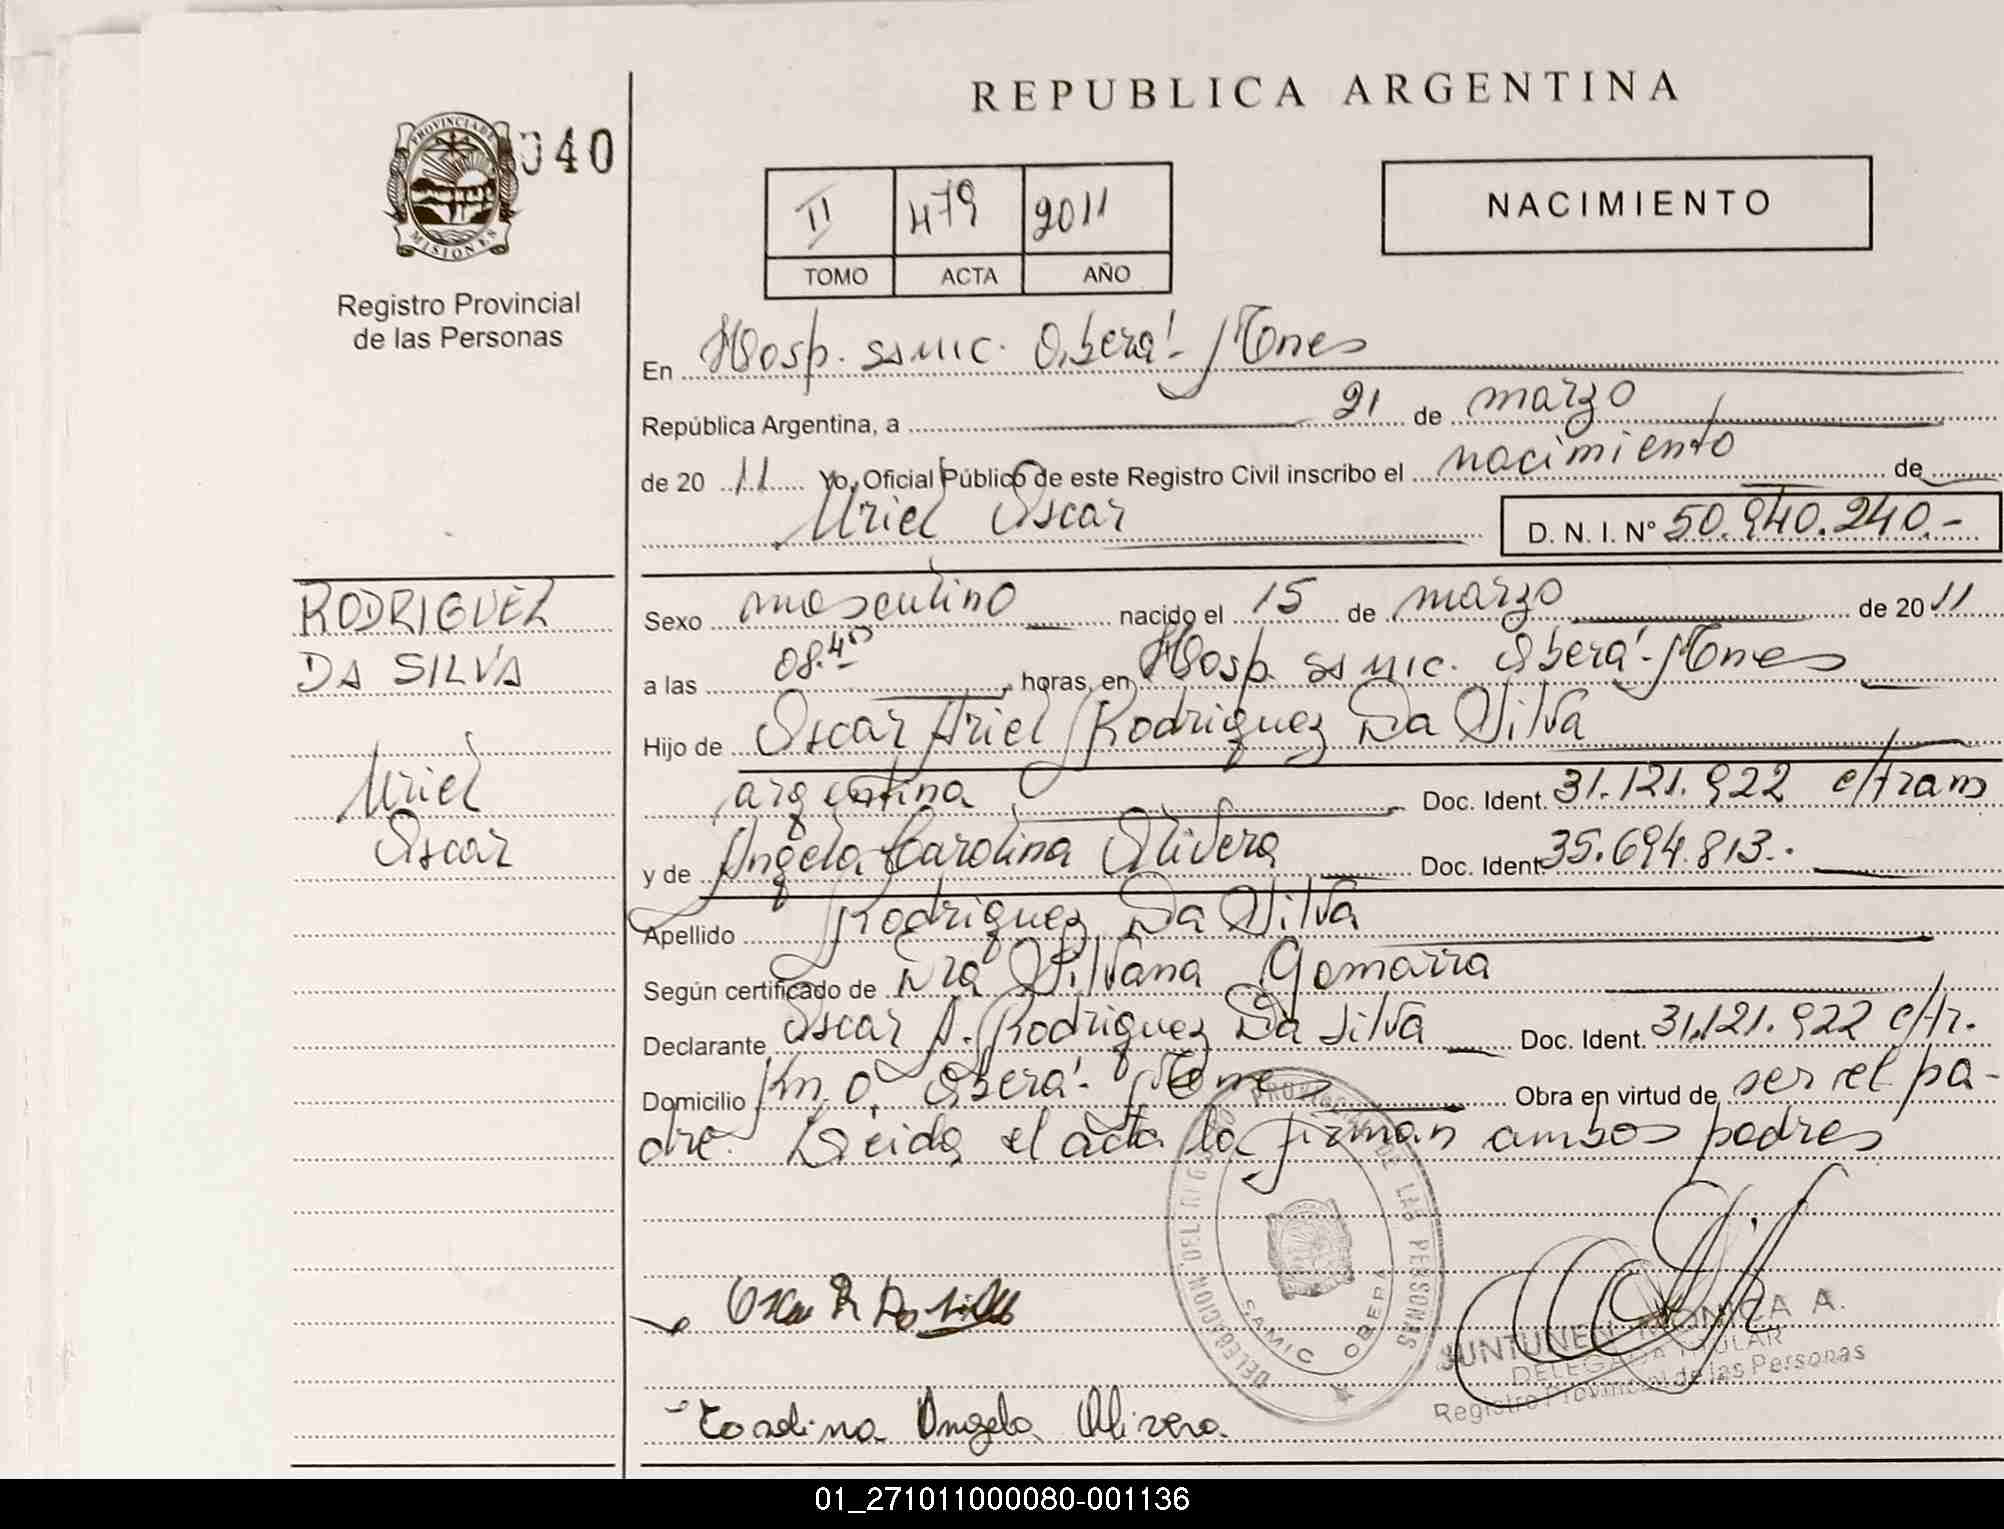 REPUBLICA ARGENTINA
PROVINCIA DE
MISIONES
040
Registro Provincial
de las Personas
II 479 2011
TOMO ACTA AÑO
NACIMIENTO
En Hosp. SAMIC. Oberá - Mnes
República Argentina, a 21 de marzo
de 20 11 Yo, Oficial Público de este Registro Civil inscribo el nacimiento de
Uriel Oscar D. N. I. N° 50.940.240.-
RODRIGUEZ
DA SILVA
Uriel
Oscar
Sexo masculino nacido el 15 de marzo de 20 11
a las 08.45 horas, en Hosp. SAMIC. Oberá - Mnes
Hijo de Oscar Ariel Rodriguez Da Silva
argentina Doc. Ident. 31.121.922 c/tram
y de Angela Carolina Olivera Doc. Ident. 35.694.813.-
Apellido Rodriguez Da Silva
Según certificado de Dra Silvana Gomarra
Declarante Oscar A. Rodriguez Da Silva Doc. Ident. 31.121.922 c/tr.
Domicilio Km. 0 Oberá - Mnes Obra en virtud de ser el pa-
dre. Leida el acta la firman ambos padres
DELEGACION DEL REGISTRO PROVINCIAL DE LAS PERSONAS
SAMIC OBERA
Oscar R Da Silva
JUNTUNEN MONICA A.
DELEGADA TITULAR
Registro Provincial de las Personas
Carolina Angela Olivera
01_271011000080-001136